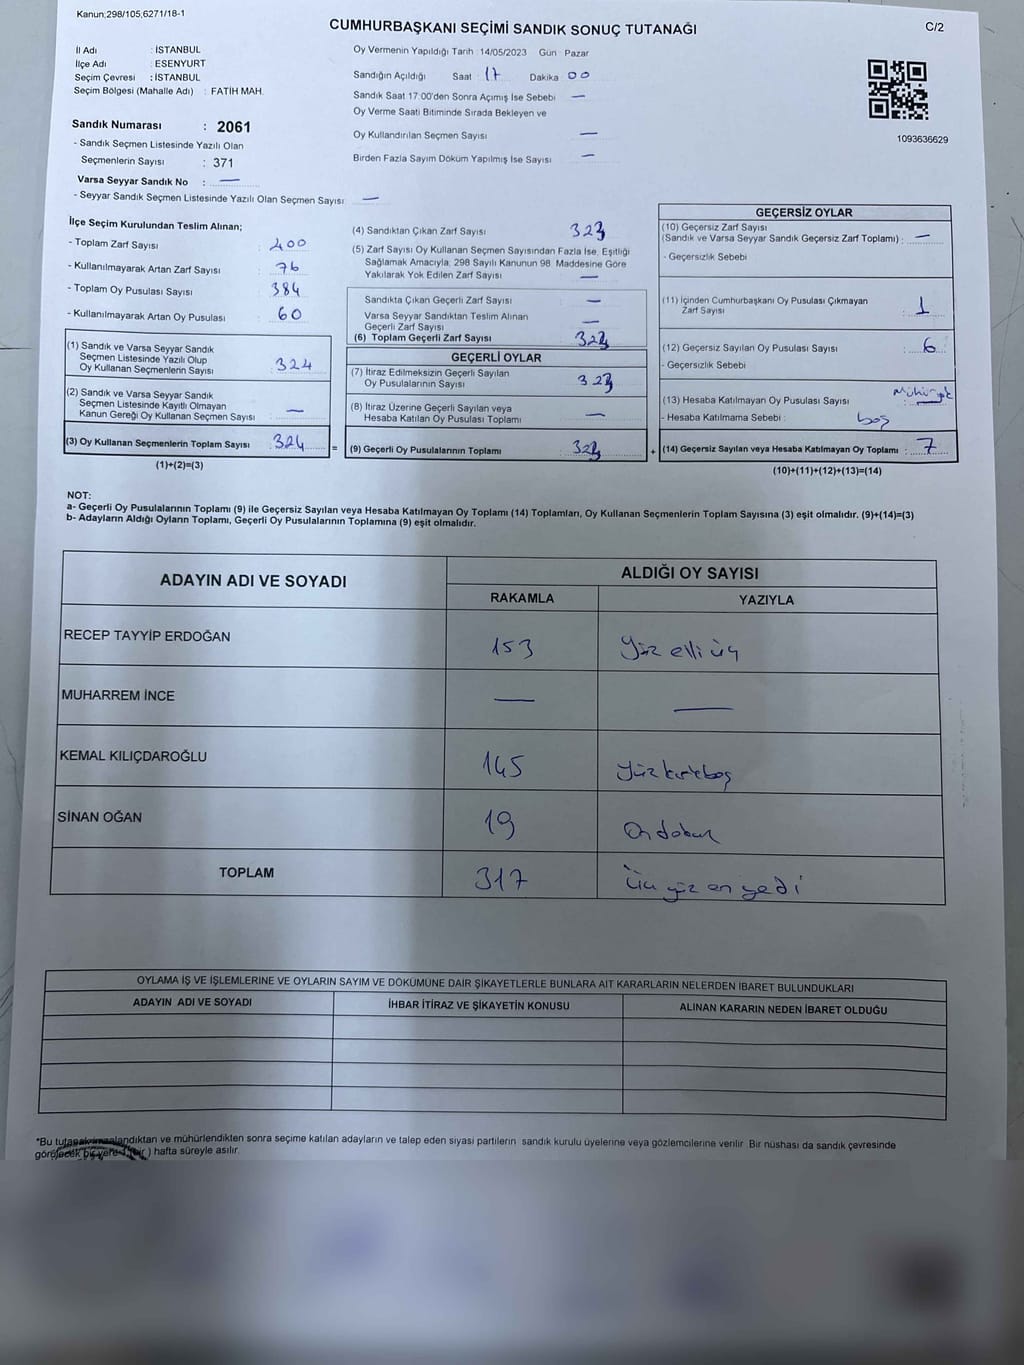 Kanun;298/105,6271/18-1
CUMHURBAŞKANI SEÇİMİ SANDIK SONUÇ TUTANAĞI
C/2
İl Adı : İSTANBUL
İlçe Adı : ESENYURT
Seçim Çevresi : İSTANBUL
Seçim Bölgesi (Mahalle Adı) : FATİH MAH.
Sandık Numarası : 2061
- Sandık Seçmen Listesinde Yazılı Olan
Seçmenlerin Sayısı : 371
Varsa Seyyar Sandık No : —
- Seyyar Sandık Seçmen Listesinde Yazılı Olan Seçmen Sayısı: —
Oy Vermenin Yapıldığı Tarih : 14/05/2023 Gün Pazar
Sandığın Açıldığı Saat : 17 Dakika 00
Sandık Saat 17:00'den Sonra Açımış İse Sebebi —
Oy Verme Saati Bitiminde Sırada Bekleyen ve
Oy Kullandırılan Seçmen Sayısı —
Birden Fazla Sayım Döküm Yapılmış İse Sayısı —
1093636629
İlçe Seçim Kurulundan Teslim Alınan;
- Toplam Zarf Sayısı : 400
- Kullanılmayarak Artan Zarf Sayısı : 76
- Toplam Oy Pusulası Sayısı : 384
- Kullanılmayarak Artan Oy Pusulası : 60
(1) Sandık ve Varsa Seyyar Sandık
Seçmen Listesinde Yazılı Olup
Oy Kullanan Seçmenlerin Sayısı : 324
(2) Sandık ve Varsa Seyyar Sandık
Seçmen Listesinde Kayıtlı Olmayan
Kanun Gereği Oy Kullanan Seçmen Sayısı : —
(3) Oy Kullanan Seçmenlerin Toplam Sayısı : 324 =
(1)+(2)=(3)
(4) Sandıktan Çıkan Zarf Sayısı : 323
(5) Zarf Sayısı Oy Kullanan Seçmen Sayısından Fazla İse, Eşitliği
Sağlamak Amacıyla, 298 Sayılı Kanunun 98. Maddesine Göre
Yakılarak Yok Edilen Zarf Sayısı : —
Sandıkta Çıkan Geçerli Zarf Sayısı : —
Varsa Seyyar Sandıktan Teslim Alınan
Geçerli Zarf Sayısı : —
(6) Toplam Geçerli Zarf Sayısı : 323
GEÇERLİ OYLAR
(7) İtiraz Edilmeksizin Geçerli Sayılan
Oy Pusulalarının Sayısı : 323
(8) İtiraz Üzerine Geçerli Sayılan veya
Hesaba Katılan Oy Pusulası Toplamı : —
(9) Geçerli Oy Pusulalarının Toplamı : 323 +
GEÇERSİZ OYLAR
(10) Geçersiz Zarf Sayısı
(Sandık ve Varsa Seyyar Sandık Geçersiz Zarf Toplamı) : —
- Geçersizlik Sebebi
(11) İçinden Cumhurbaşkanı Oy Pusulası Çıkmayan
Zarf Sayısı : 1
(12) Geçersiz Sayılan Oy Pusulası Sayısı : 6
- Geçersizlik Sebebi
(13) Hesaba Katılmayan Oy Pusulası Sayısı
- Hesaba Katılmama Sebebi : boş
(14) Geçersiz Sayılan veya Hesaba Katılmayan Oy Toplamı : 7
(10)+(11)+(12)+(13)=(14)
NOT:
a- Geçerli Oy Pusulalarının Toplamı (9) ile Geçersiz Sayılan veya Hesaba Katılmayan Oy Toplamı (14) Toplamları, Oy Kullanan Seçmenlerin Toplam Sayısına (3) eşit olmalıdır. (9)+(14)=(3)
b- Adayların Aldığı Oyların Toplamı, Geçerli Oy Pusulalarının Toplamına (9) eşit olmalıdır.
ADAYIN ADI VE SOYADI
ALDIĞI OY SAYISI
RAKAMLA YAZIYLA
RECEP TAYYİP ERDOĞAN 153 Yüz elli üç
MUHARREM İNCE — —
KEMAL KILIÇDAROĞLU 145 Yüz kırk beş
SİNAN OĞAN 19 On dokuz
TOPLAM 317 Üç yüz on yedi
OYLAMA İŞ VE İŞLEMLERİNE VE OYLARIN SAYIM VE DÖKÜMÜNE DAİR ŞİKAYETLERLE BUNLARA AİT KARARLARIN NELERDEN İBARET BULUNDUKLARI
ADAYIN ADI VE SOYADI İHBAR İTİRAZ VE ŞİKAYETİN KONUSU ALINAN KARARIN NEDEN İBARET OLDUĞU
*Bu tutanak imzalandıktan ve mühürlendikten sonra seçime katılan adayların ve talep eden siyasi partilerin sandık kurulu üyelerine veya gözlemcilerine verilir. Bir nüshası da sandık çevresinde
görülecek bir yere 1 (bir) hafta süreyle asılır.